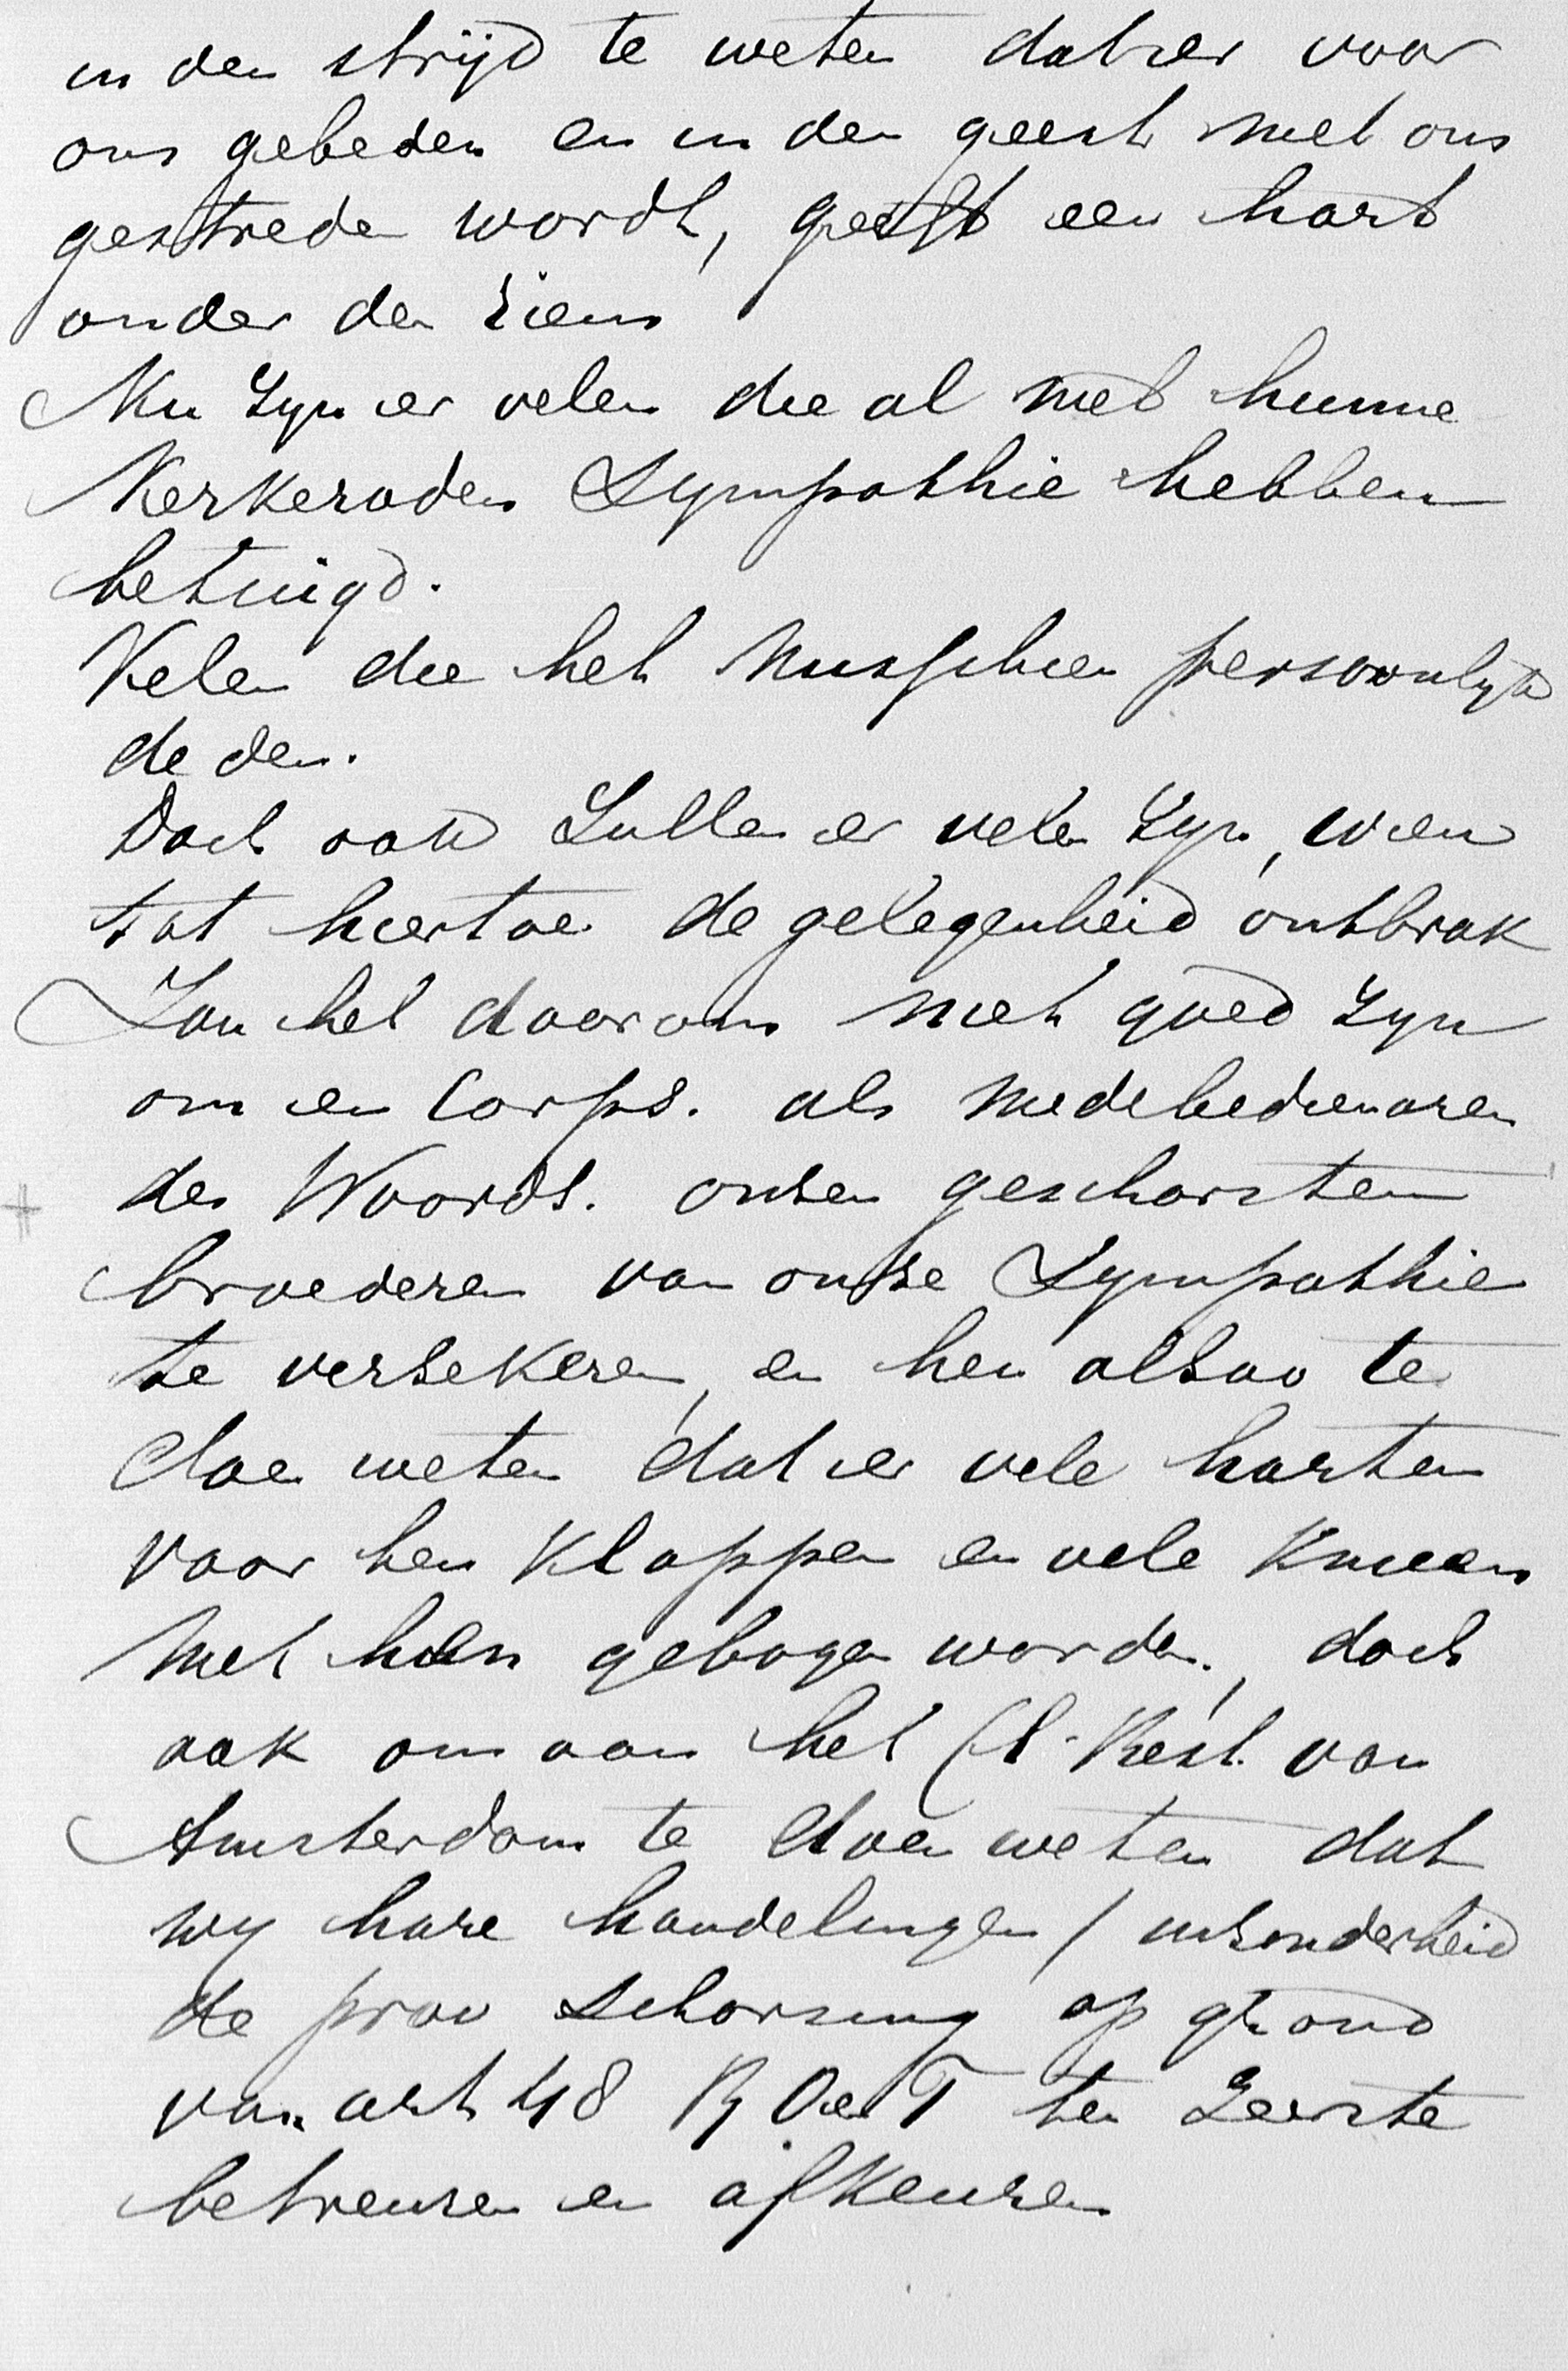 in den strijd te weten dat er voor
ons gebeden en in den geest met ons
gestreden wordt, geeft een hart
onder den riem
Nu zyn er velen die al met hunne
Kerkeraden Sympathie hebben
betuigd.
Velen die het misschien persoonlyk
deden.
Doch ook zullen er velen zyn, wien
tot hiertoe de gelegenheid ontbrak
Zou het daarom niet goed zyn
om en Corps. als medebedienaren
des Woords. onzen geschorsten
broederen van onze Sympathie
te verzekeren, en hen alzoo te
doen weten dat er vele harten
voor hen kloppen en vele knieen
met hen gebogen worden, doch
ook om aan het Cl. Best. van
Amsterdam te doen weten dat
wy hare handelingen / inzonderheid
de prov schorsing op grond
van art 48 R O en T ten zeerste
betreuren en afkeuren